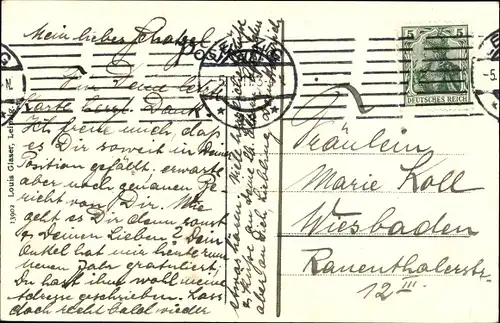 Mein lieber Schatzel
Für Deine liebe
Karte herzl. Dank.
Ich freue mich, daß
es Dir soweit in Deine
Position gefällt, erwarte
aber noch genauen Be
richt von Dir. Wie
geht es Dir denn sonst
u. Deinen Lieben? Dein
Onkel hat mir heute zum
neuen Jahr gratuliert,
Du hast ihm wohl meine
Adresse geschrieben. Lass
doch recht bald wieder
etwas hören
u. Küsse
aber an Dich, Liebling
13902 Louis Glaser, Lei
5 5
DEUTSCHES REICH
Fräulein
Marie Koll
Wiesbaden
Rauenthalerstr.
12 III.